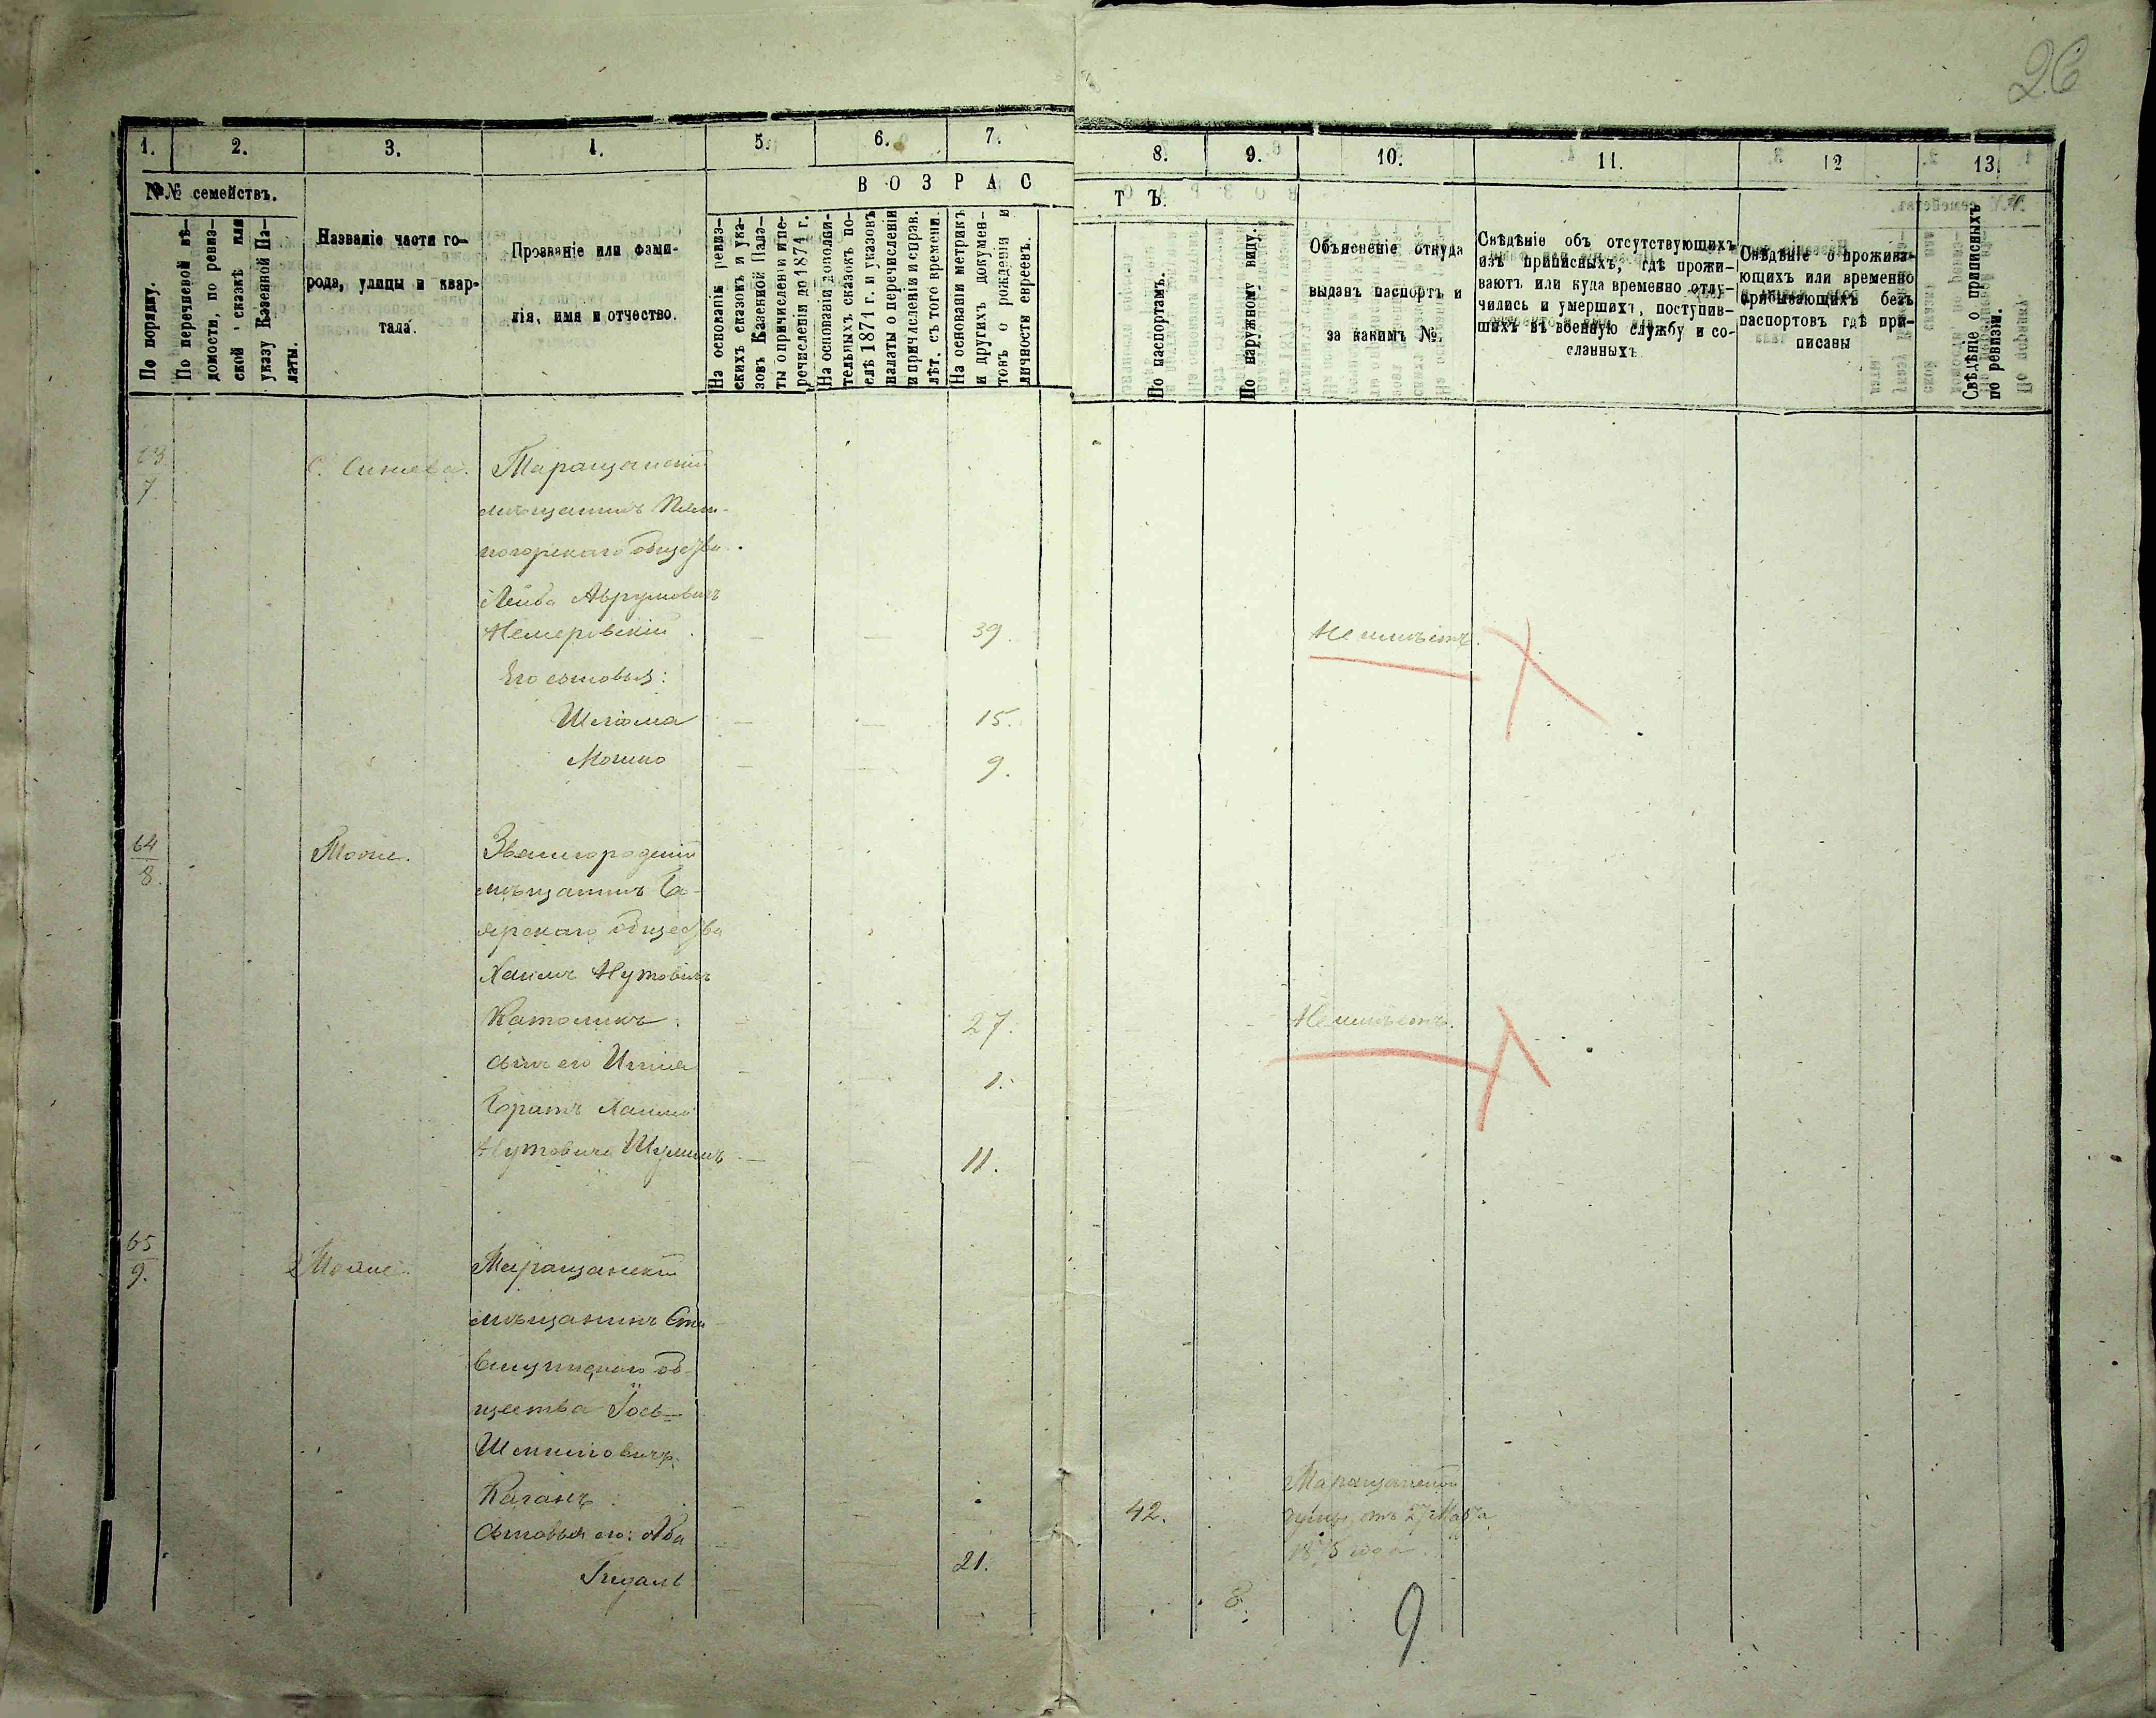 26
1. 2. 3. 4. 5. 6. 7. 8. 9. 10. 11. 12 13.
№№ семействъ.
По порядку.
По перечневой вѣ-
домости, по ревиз-
ской сказкѣ или
указу Казенной Па-
латы.
Названіе части го-
рода, улицы и квар-
тала.
Прозваніе или фами-
лія, имя и отчество.
ВОЗРАСТЪ.
На основаніи ревиз-
скихъ сказокъ и ука-
зовъ Казенной Пала-
ты о причисленіи и пе-
речисленіи до 1874 г.
На основаніи дополни-
тельныхъ сказокъ по-
слѣ 1874 г. и указовъ
палаты о перечисленіи
и причисленіи и справ.
лѣт. съ того времени.
На основаніи метрикъ
и другихъ докумен-
товъ о рожденіи и
личности евреевъ.
По паспортамъ.
По наружному виду.
Объясненіе откуда
выданъ паспортъ и
за какимъ №.
Свѣдѣніе объ отсутствующихъ
изъ приписныхъ, гдѣ прожи-
ваютъ или куда временно отлу-
чились и умершихъ, поступив-
шихъ въ военную службу и со-
сланныхъ
Свѣдѣніе о прожива-
ющихъ или временно
прибывающихъ безъ
паспортовъ гдѣ при-
писаны
Свѣдѣніе о приписныхъ
по ревизіи.
63
7.
С. Синева. Таращанскій
мѣщанинъ
общества
Лейба Аврумовичъ
Немеровскій 39. Не имѣетъ.
Его сыновья:
Шлома 15.
Мошко 9.
64
8.
Тоже. Звенигородскій
мѣщанинъ Бо-
ярскаго общества
Хаимъ Нутовичъ
Католикъ 27. Не имѣетъ.
сынъ его 1.
Братъ Хаима
Нутовича 11.
65
9.
Тоже. Таращанскій
мѣщанинъ Ста-
вищскаго об-
щества Іось
Каганъ 42. Таращанской
Сыновья его: Аба 21. думы отъ 27 Марта
1875 года
8.
9